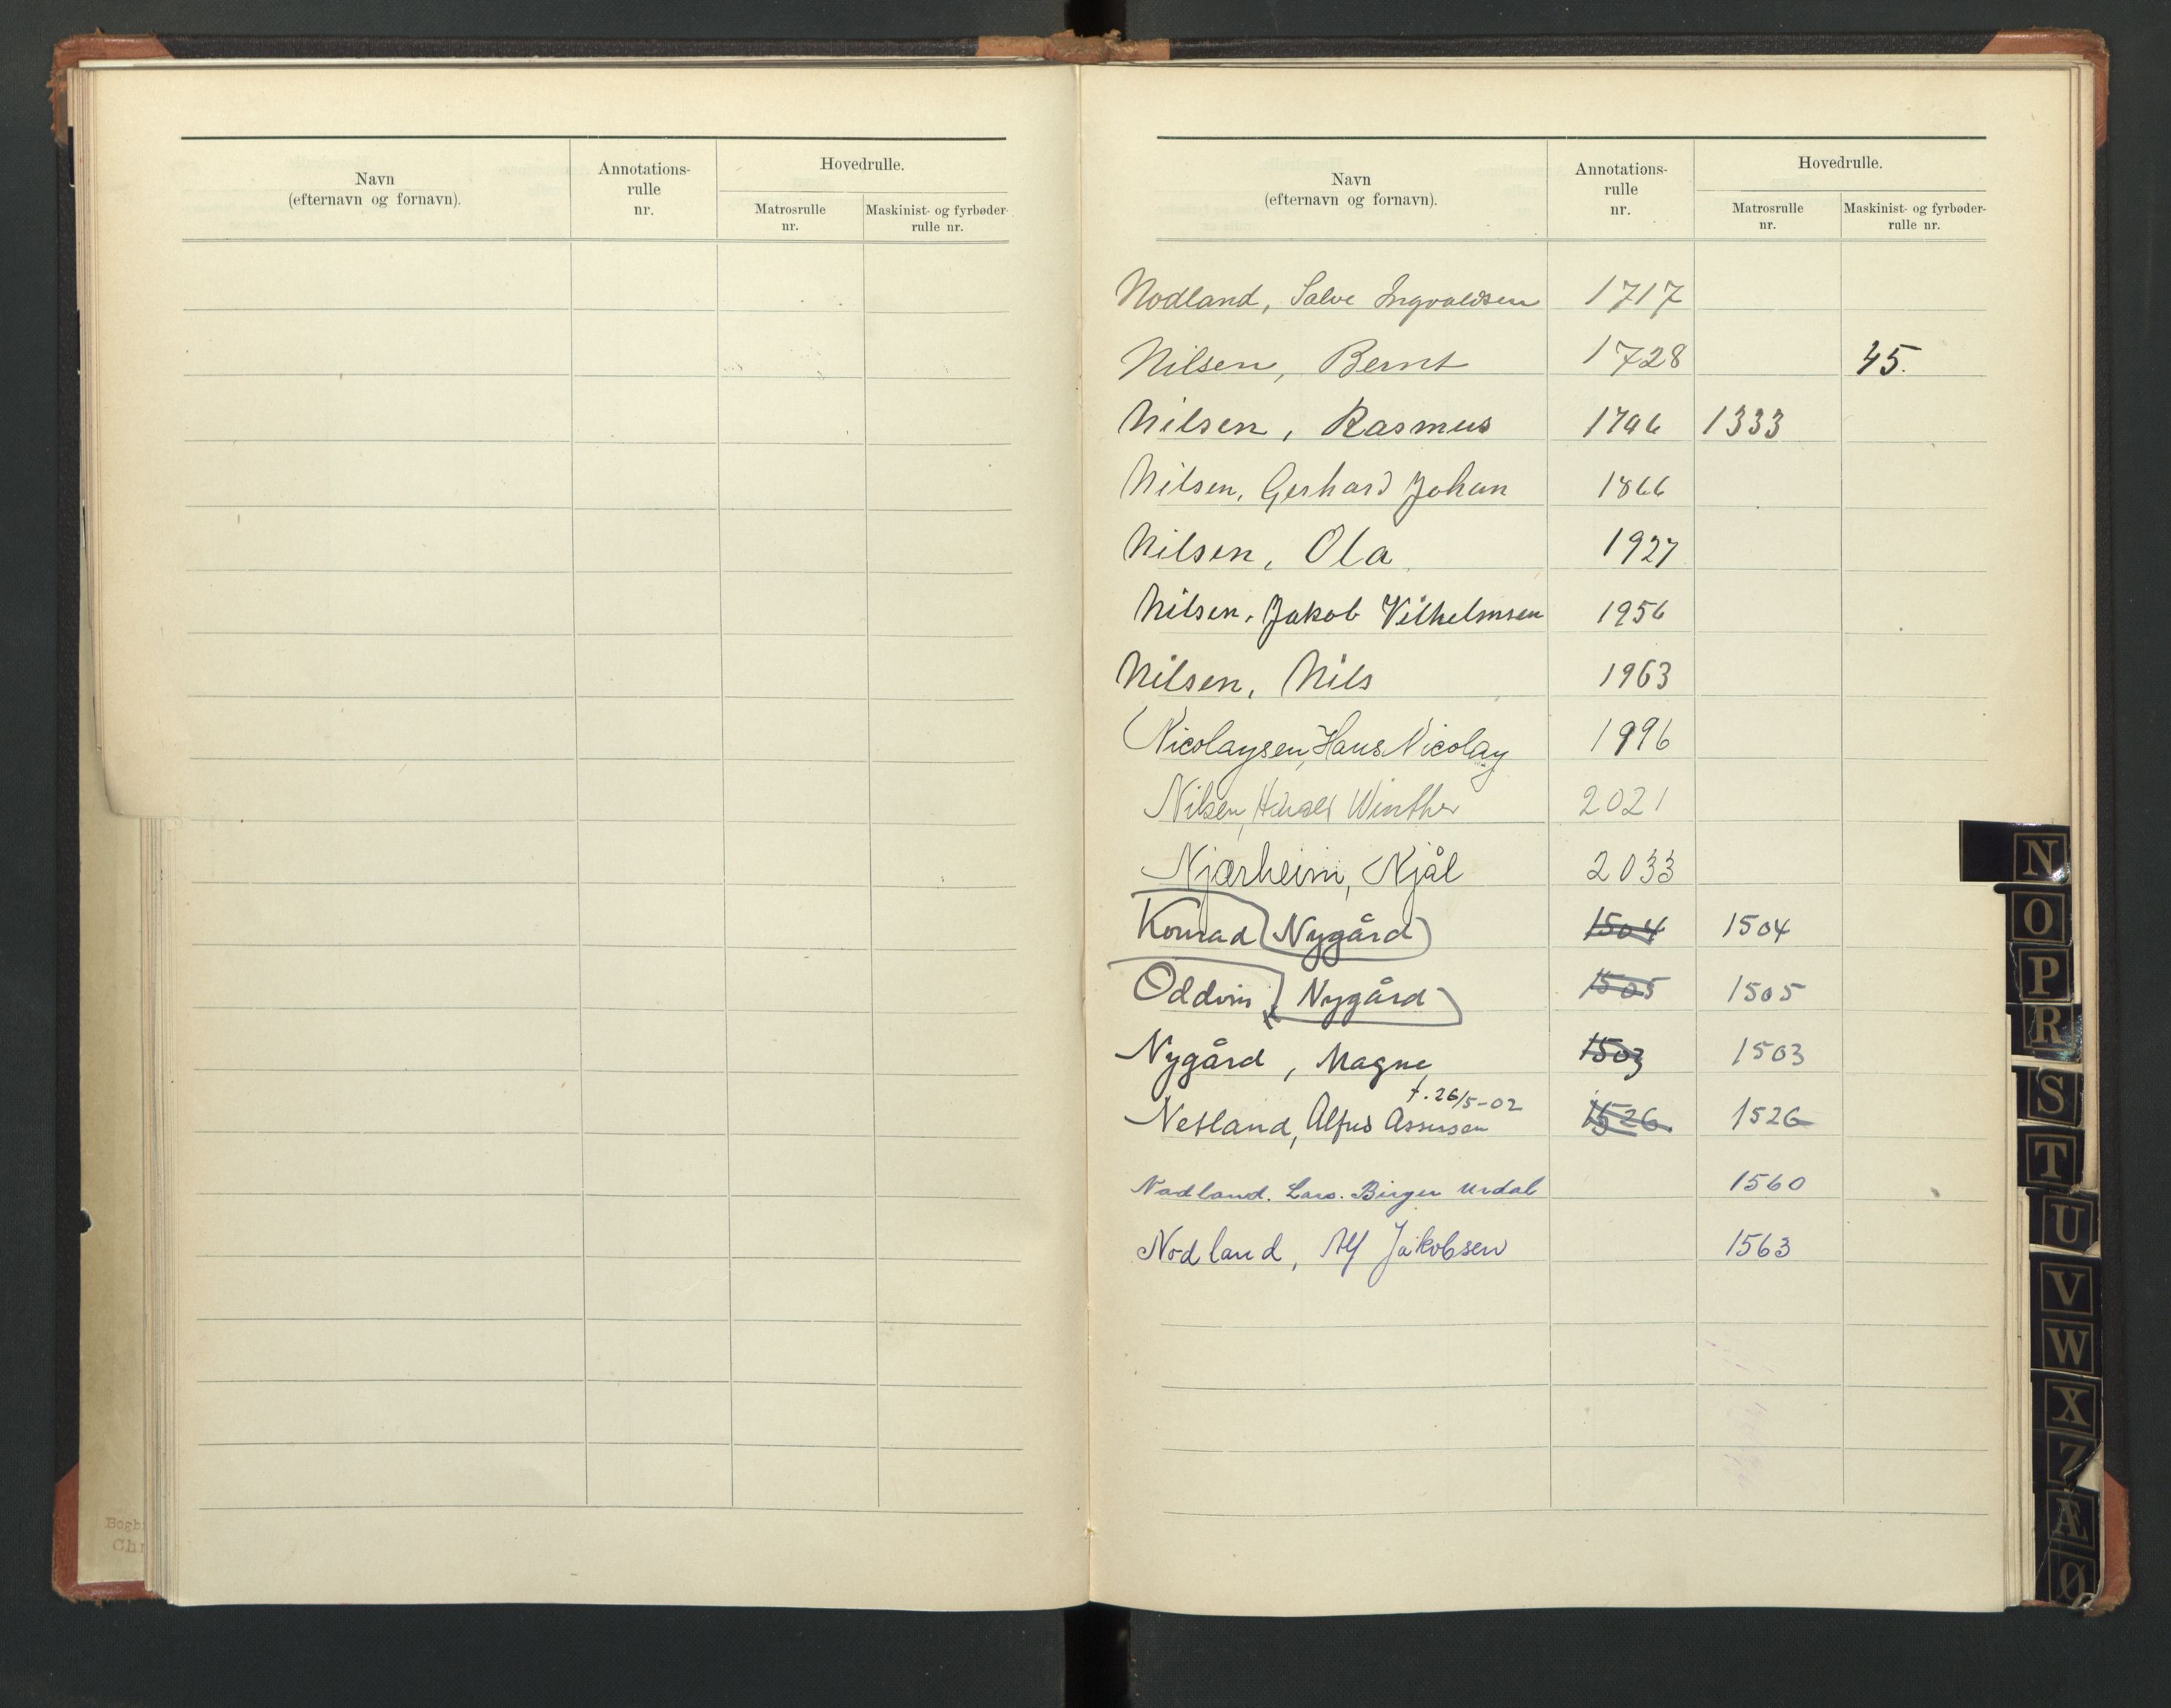 Navn
(efternavn og fornavn).
Annotations-
rulle
nr.
Hovedrulle.
Matrosrulle
nr.
Maskinist- og fyrbøder-
rulle nr.
Bogb
Chr
Navn
(efternavn og fornavn).
Annotations-
rulle
nr.
Hovedrulle.
Matrosrulle
nr.
Maskinist- og fyrbøder-
rulle nr.
Nodland, Salve Ingvaldsen 1717
Nilsen, Bernt 1728 45.
Nilsen, Rasmus 1796 1333
Nilsen, Gerhard Johan 1866
Nilsen, Ola 1927
Nilsen, Jakob Vilhelmsen 1956
Nilsen, Nils 1963
Nicolaysen, Hans Nicolay 1996
Nilsen, Winther 2021
Njærheim, Njål 2033
Konrad Nygård 1504 1504
Oddvin Nygård 1505 1505
Nygård, Magne 1503 1503
f. 26/5-02
Netland, Alfred Assersen 1526 1526
Nodland. Lars. Birger Urdal 1560
Nodland, Alf Jakobsen 1563
N
O
P
R
S
T
U
V
W
X
Z
Æ
Ø